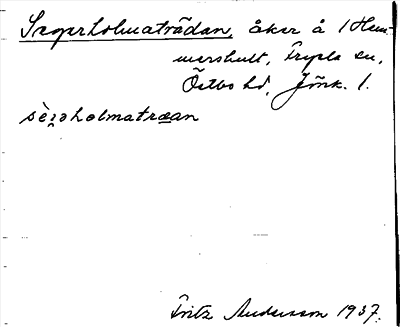 Segerholmaträdan, åker å 1 Hem-
mershult, Fryele sn,
Östbo hd, Jönk. l.
sèi̯əholmatræan
Fritz Andersson 1937.